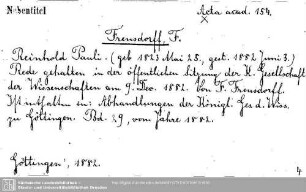 Nebentitel
Acta acad. 154.
Frensdorff, F.
Reinhold Pauli. (geb. 1823 Mai 25., gest. 1882 Juni 3.)
Rede gehalten in der öffentlichen Sitzung der K. Gesellschaft
der Wissenschaften am 9. Dec. 1882. von F. Frensdorff.
Ist enthalten in: Abhandlungen der Königl. Ges. d. Wiss.
zu Göttingen. Bd. 29, vom Jahre 1882.
Göttingen, 1882.
4.